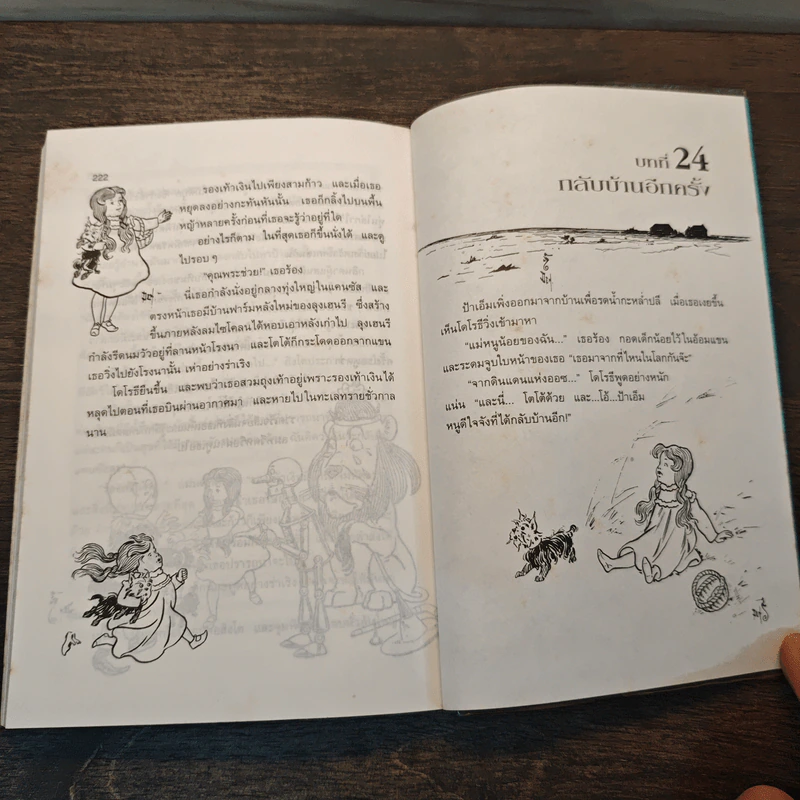 222
รองเท้าเงินไปเพียงสามก้าว และเมื่อเธอ
หยุดลงอย่างกะทันหันนั้น เธอก็กลิ้งไปบนพื้น
หญ้าหลายครั้งก่อนที่เธอจะรู้ว่าอยู่ที่ใด
อย่างไรก็ตาม ในที่สุดเธอก็ขึ้นนั่งได้ และดู
ไปรอบ ๆ
"คุณพระช่วย!" เธอร้อง
นี่เธอกำลังนั่งอยู่กลางทุ่งใหญ่ในแคนซัส และ
ตรงหน้าเธอมีบ้านฟาร์มหลังใหม่ของลุงเฮนรี ซึ่งสร้าง
ขึ้นภายหลังลมไซโคลนได้หอบเอาหลังเก่าไป ลุงเฮนรี
กำลังรีดนมวัวอยู่ที่ลานหน้าโรงนา และโตโต้ก็กระโดดออกจากแขน
เธอวิ่งไปยังโรงนานั้น เห่าอย่างร่าเริง
โดโรธียืนขึ้น และพบว่าเธอสวมถุงเท้าอยู่เพราะรองเท้าเงินได้
หลุดไปตอนที่เธอบินผ่านอากาศมา และหายไปในทะเลทรายชั่วกาล
นาน
บทที่ 24
กลับบ้านอีกครั้ง
ป้าเอ็มเพิ่งออกมาจากบ้านเพื่อรดน้ำกะหล่ำปลี เมื่อเธอเงยขึ้น
เห็นโดโรธีวิ่งเข้ามาหา
"แม่หนูน้อยของฉัน..." เธอร้อง กอดเด็กน้อยไว้ในอ้อมแขน
และระดมจูบใบหน้าของเธอ "เธอมาจากที่ไหนในโลกกันจ๊ะ"
"จากดินแดนแห่งออซ..." โดโรธีพูดอย่างหนัก
แน่น "และนี่... โตโต้ด้วย และ...โอ้...ป้าเอ็ม
หนูดีใจจังที่ได้กลับบ้านอีก!"